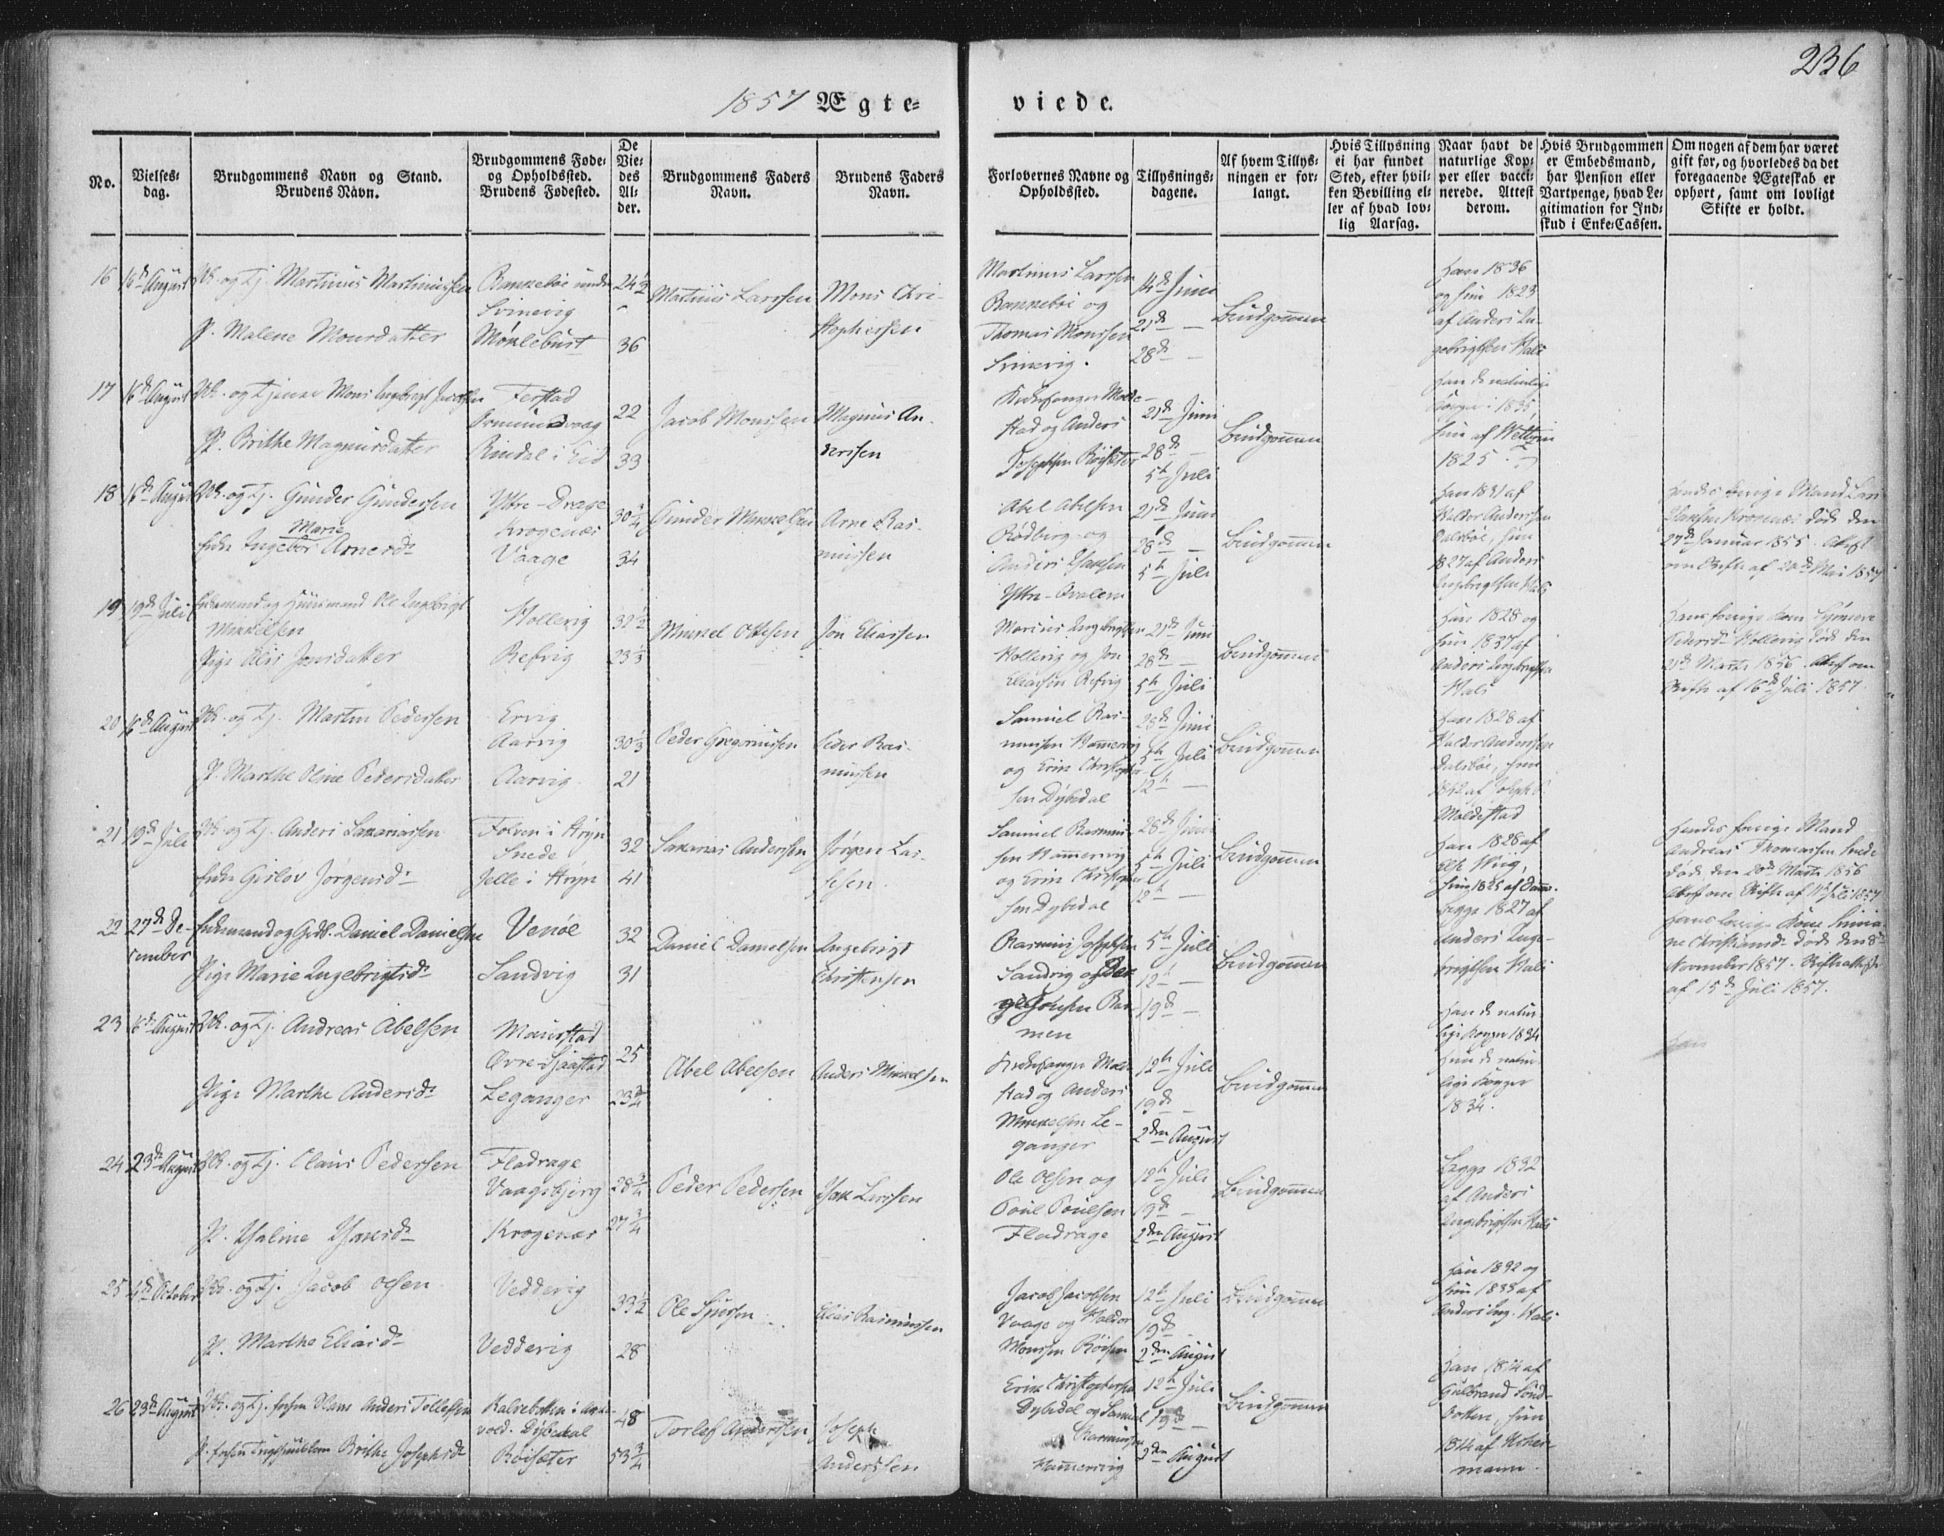 236
1857 Ægte=
viede.
No.
Vielses=
dag.
Brudgommens Navn og Stand.
Brudens Navn.
Brudgommens Føde=
og Opholdssted.
Brudens Fødested.
De
Vie=
des
Al=
der.
Brudgommens Faders
Navn.
Brudens Faders
Navn.
Forlovernes Navne og
Opholdssted.
Tillysnings=
dagene.
Af hvem Tillys=
ningen er for=
langt.
Hvis Tillysning
ei har fundet
Sted, efter hvil=
ken Bevilling el=
ler af hvad lov=
lig Aarsag.
Naar havt de
naturlige Kop=
per eller vacci=
nerede. Attest
derom.
Hvis Brudgommen
er Embedsmand,
har Pension eller
Vartpenge, hvad Le=
gitimation for Ind=
skud i Enke=Cassen.
Om nogen af dem har været
gift før, og hvorledes da det
foregaaende Ægteskab er
ophørt, samt om lovligt
Skifte er holdt.
16
16de August
og Tj. Martinus Martinussen
P. Malene Monsdatter
Svinevig
24½
36
Martinus Larssen
Mons Chri-
stophersen
Martinus Larssen
og
Thomas Monssen
Svinevig.
14de Juni
21de —
28de —
Brudgommen
Han 1836
og hun 1823
af Anders In-
gebrigtsen Hals
17
16de August
og Tjener Mons Ingebrigt Jacobsen
P. Brithe Magnusdatter
Rindal i Eid
22
33
Jacob Monssen
Magnus An-
derssen
Kirkesanger Molde-
stad og Anders
Josephsen Røisæter
21de Juni
28de —
5te Juli
Brudgommen
1825
18
16de August
og Tj. Gunder Gundersen
Enke Ingebor Marie Arnesd
Ytre-Drage
Krogenæs
Vaage
30¾
34
Gunder Mikkelsen
Arne Ras-
mussen
Abel Abelsen
Rødberg og
Anders
21de Juni
28de —
5te Juli
Brudgommen
Han 1831 af
Haldor Anderssen
hun
1827 af Anders
Ingebrigtsen Hals
Hendes forrige Mand
Krogenæs døde den
27de Januar 1855. Attest
om Skifte af 20de Mai 1857
19
19de Juli
Enkemand og Huusmand Ole Ingebrigt
Mikkelsen
Pige Jonsdatter
Hollevig
Refvig
32½
23⅓
Mikkel Ottesen
Jon Eliassen
Marius Ingebrigtsen
Hollevig og Jon
Eliassen Refvig
21de Juni
28de —
5te Juli
Brudgommen
Han 1828 og
hun 1837 af
Anders Ingebrigtsen
Hals
Hans forrige Kone
Hollevig døde den
21de Marts 1856. Attest om
Skifte af 16de Juli 1857.
20
16de August
og Tj. Martin Pedersen
P. Marthe Oline Pedersdatter
Ervig
Aarvig
Aarvig
30⅓
21
Peder Gregoriussen
Peder Ras-
mussen
Samuel Ras-
mussen Hammervig
og Erik Christopher-
sen Dybedal
28de Juni
5te Juli
12te —
Brudgommen
Han 1828 af
Halder Anderssen
hun
Moldestad
21
19de Juli
og Tj. Anders Sakariassen
Enke Gislov Jørgensd
Folven i Stryn
41
32
Sakarias Anderssen
Jørgen Las-
sesen.
Samuel Rasmus-
sen Hammervig
og Erik Christopher-
sen Dybedal
28de Juni
5te Juli
12te —
Brudgommen
Han 1828 af
hun 1825 af
Hendes forrige Mand
Andreas Thomassen
døde den 20de Marts 1856
Attest om Skifte af 11te Juli 1857
22
27de De-
cember
Enkemand og Gdb. Daniel Danielsen
Pige Marie Ingebrigtsd
Venøe
Sandvig
32
31
Daniel Danielsen
Ingebrigt
Christensen
Rasmus Josephsen
Sandvig og
Bar-
men
5te Juli
12te —
19de —
Brudgommen
Begge 1827 af
Anders Inge-
brigtsen Hals
Hans forrige Kone
Christiansd døde den 8de
November 1857. Skifteattest
af 15de Juli 1857.
23
16de August
og Tj. Andreas Abelsen
Pige Marthe Andersd
Maurstad
Øvre-
Leganger
25
23¾
Abel Abelsen
Anders Mikkelsen
Kirkesanger Molde-
stad og Anders
Mikkelsen Le-
ganger
12te Juli
19de —
2den August
Brudgommen
Han de natur-
lige Kopper 1834
hun de natur-
lige Kopper
1834.
24
23de August
og Tj. Claus Pedersen
P. Jsaksd
Fladrage
Vaagsbjerg
Krogenæs
28¾
27¾
Peder Pedersen
Jsak Larssen
Ole Olsen og
Poul Poulsen
Fladrage
12te Juli
19de —
2den August
Brudgommen
Begge 1832
af Anders
Ingebrigtsen Hals
25
4de October
og Tj. Jacob Olsen
P. Marthe Eliasd
Vedderig
Vedderig
33½
28
Ole
Elias Rasmussen
Jacob Jacobsen
Vaage og Haldor
Monssen
12te Juli
19de —
2den August
Brudgommen
Han 1832 og
hun 1833 af
Anders Ing. Hals
26
23de August
og Tj. Hans Anders Tollefsen
Brithe Josephsd
Dybedal
Røisæter
48
53¾
Torlef Anderssen
Joseph
Anderssen
Erik Christophersen
Dybedal og Samuel
Rasmussen
Hammervig
12te Juli
19de —
2den August
Brudgommen
Han 1814 af
Gulbrand Sond-
botten, hun
1814 af